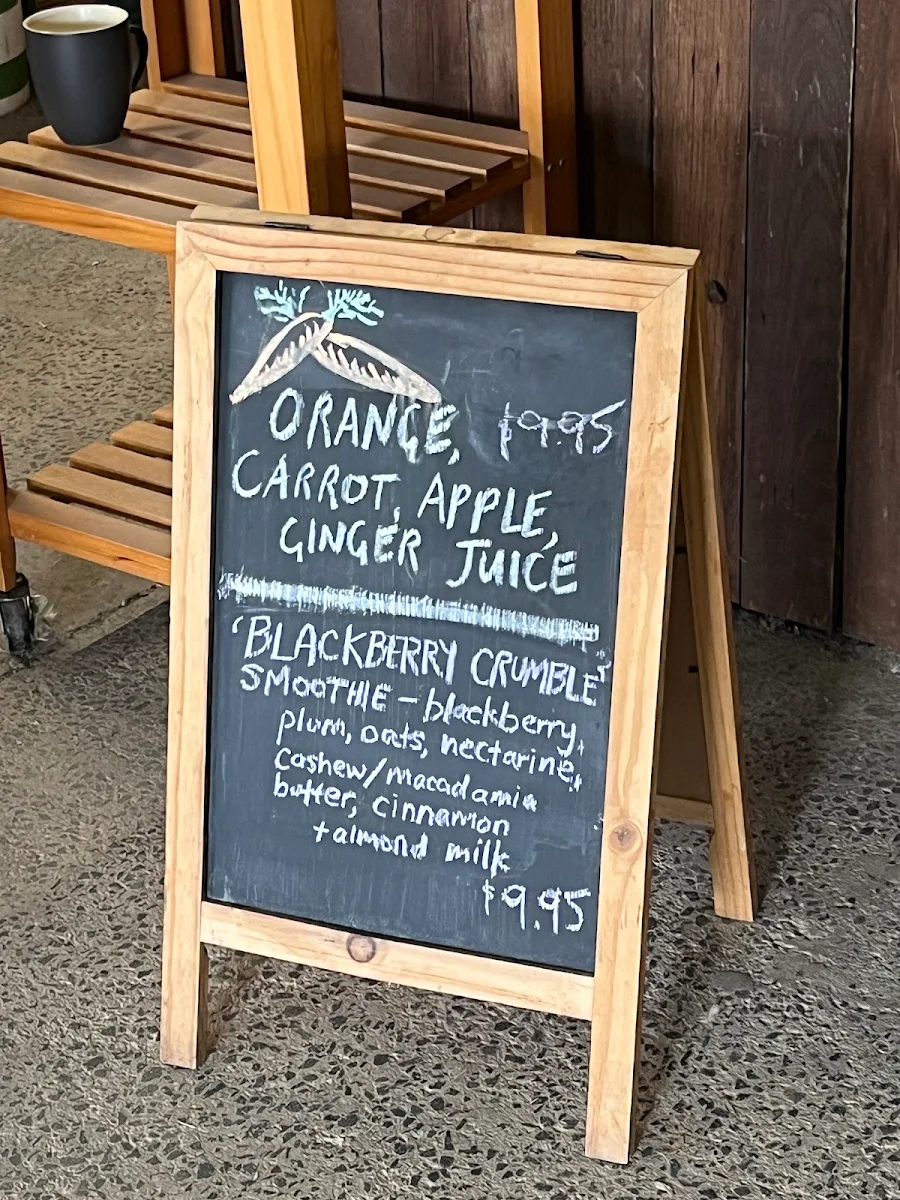 ORANGE, $9.95
CARROT, APPLE,
GINGER JUICE
'BLACKBERRY CRUMBLE'
SMOOTHIE - blackberry,
plum, oats, nectarine,
cashew/macadamia
butter, cinnamon
+almond milk
$9.95